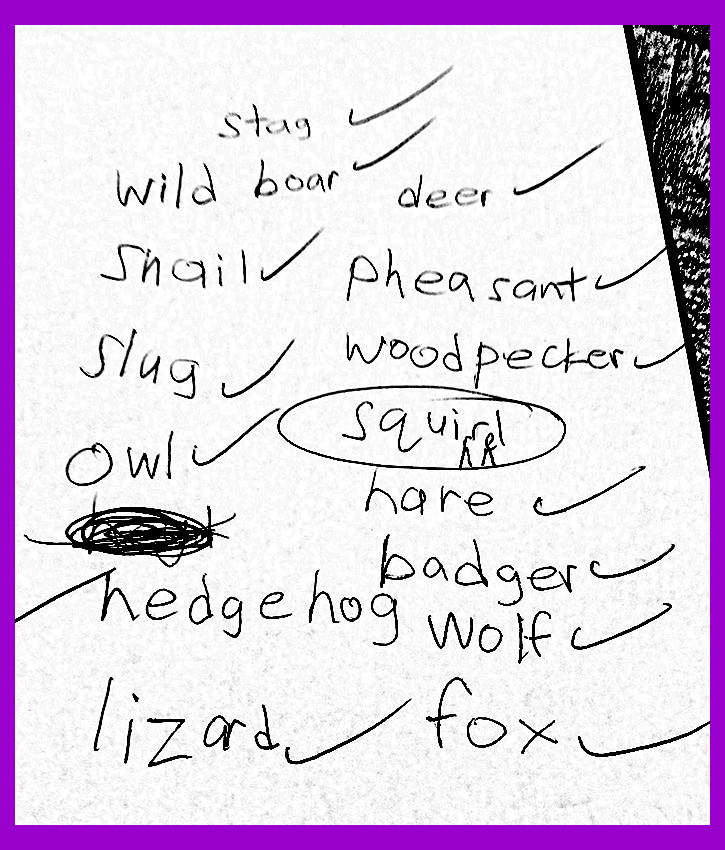 stag
wild boar
deer
snail
pheasant
slug
woodpecker
owl
hare
badger
hedgehog
wolf
lizard
fox